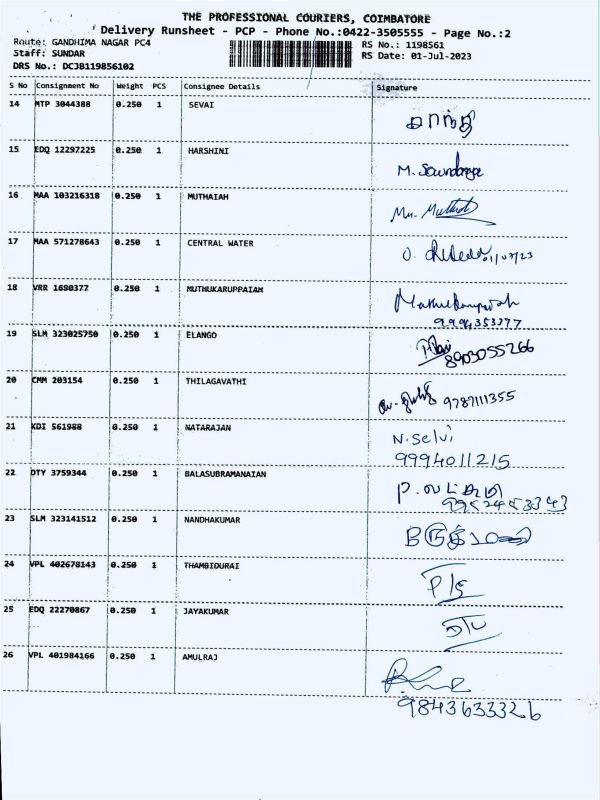 THE PROFESSIONAL COURIERS, COIMBATORE
Delivery Runsheet - PCP - Phone No.:0422-3505555 - Page No.:2
Route: GANDHIMA NAGAR PC4 RS No.: 1198561
Staff: SUNDAR RS Date: 01-Jul-2023
DRS No.: DCJB119856102
S No Consignment No Weight PCS Consignee Details Signature
14 MTP 3044388 0.250 1 SEVAI காந்தி
15 EDQ 12297225 0.250 1 HARSHINI M. Soundarya
16 MAA 103216318 0.250 1 MUTHAIAH Mu. Muthu
17 MAA 571278643 0.250 1 CENTRAL WATER 01/07/23
18 VRR 1690377 0.250 1 MUTHUKARUPPAIAH
9994353377
19 SLM 323025750 0.250 1 ELANGO 8903055266
20 CMM 203154 0.250 1 THILAGAVATHI 9787111355
21 KDI 561988 0.250 1 NATARAJAN N. Selvi
9994011215
22 DTY 3759344 0.250 1 BALASUBRAMANAIAN P. லட்சுமி
9952453343
23 SLM 323141512 0.250 1 NANDHAKUMAR
24 VPL 402678143 0.250 1 THAMBIDURAI
25 EDQ 22270867 0.250 1 JAYAKUMAR
26 VPL 401984166 0.250 1 AMULRAJ
9843633326